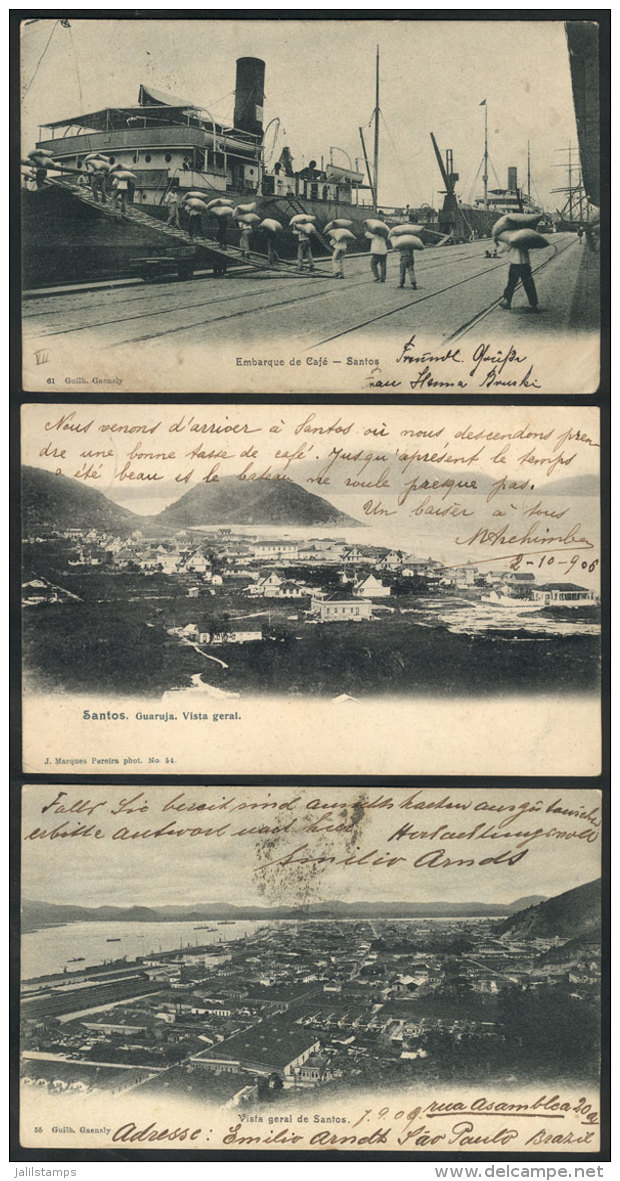 VII
Embarque de Café – Santos
61 Guilh. Gaensly
Freundl. Grüße
Frau Henna Bruski
Nous venons d'arriver à Santos où nous descendons pren
dre une bonne tasse de café. Jusqu'apresent le temps
a été beau et le bateau ne roule presque pas.
Un baiser à tous
2-10-906
Santos. Guaruja. Vista geral.
J. Marques Pereira phot. No 54.
Falls Sie bereit sind ansichtskarten auszutauschen
erbitte antwort nach hier Hochachtungsvoll
Emilio Arndt
Vista geral de Santos. 7.9.09 rua Asamblea 20a
55 Guilh. Gaensly Adresse: Emilio Arndt São Paulo Brazil
jalilstamps
www.delcampe.net